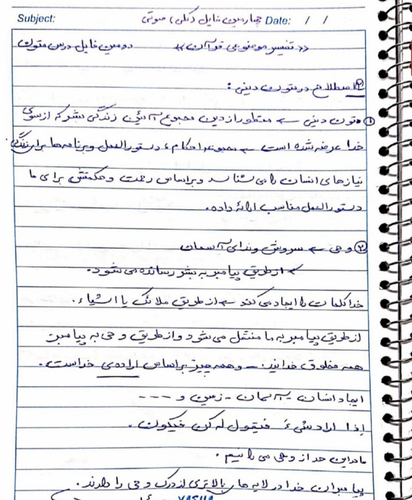 Subject: چهارمین فایل (کل) صوتی Date: / /
«تفسیر موضوعی قرآن» دومین فایل درس متون
۲ اصطلاح در متون دینی :
① متون دینی ← منظور از دین مجموع آئین زندگی بشر که از سوی
خدا عرضه شده است ← مجموعه احکام، دستورالعمل و برنامه‌ها برای زندگی.
نیازهای انسان را می‌شناسد و براساس رحمت و حکمتش برای ما
دستورالعمل مناسب ارائه داده.
② وحی ← سروش و ندای آسمان
← از طریق پیامبر به بشر رسانده می‌شود.
خدا کلمات را ایجاد می‌کند ← از طریق ملائک یا اشیاء.
از طریق پیامبر به ما منتقل می‌شود و از طریق وحی به پیامبر
همه مخلوق خدایند. – و همه چیز براساس اراده‌ی خداست.
ایجاد انسان – آسمان – زمین و ---
اذا اراد شیء فیقول له کن فیکون.
ما در این حد از وحی می‌دانیم.
پیامبران خدا در لایه‌های بالاتری از درک وحی را دارند.
YASNA